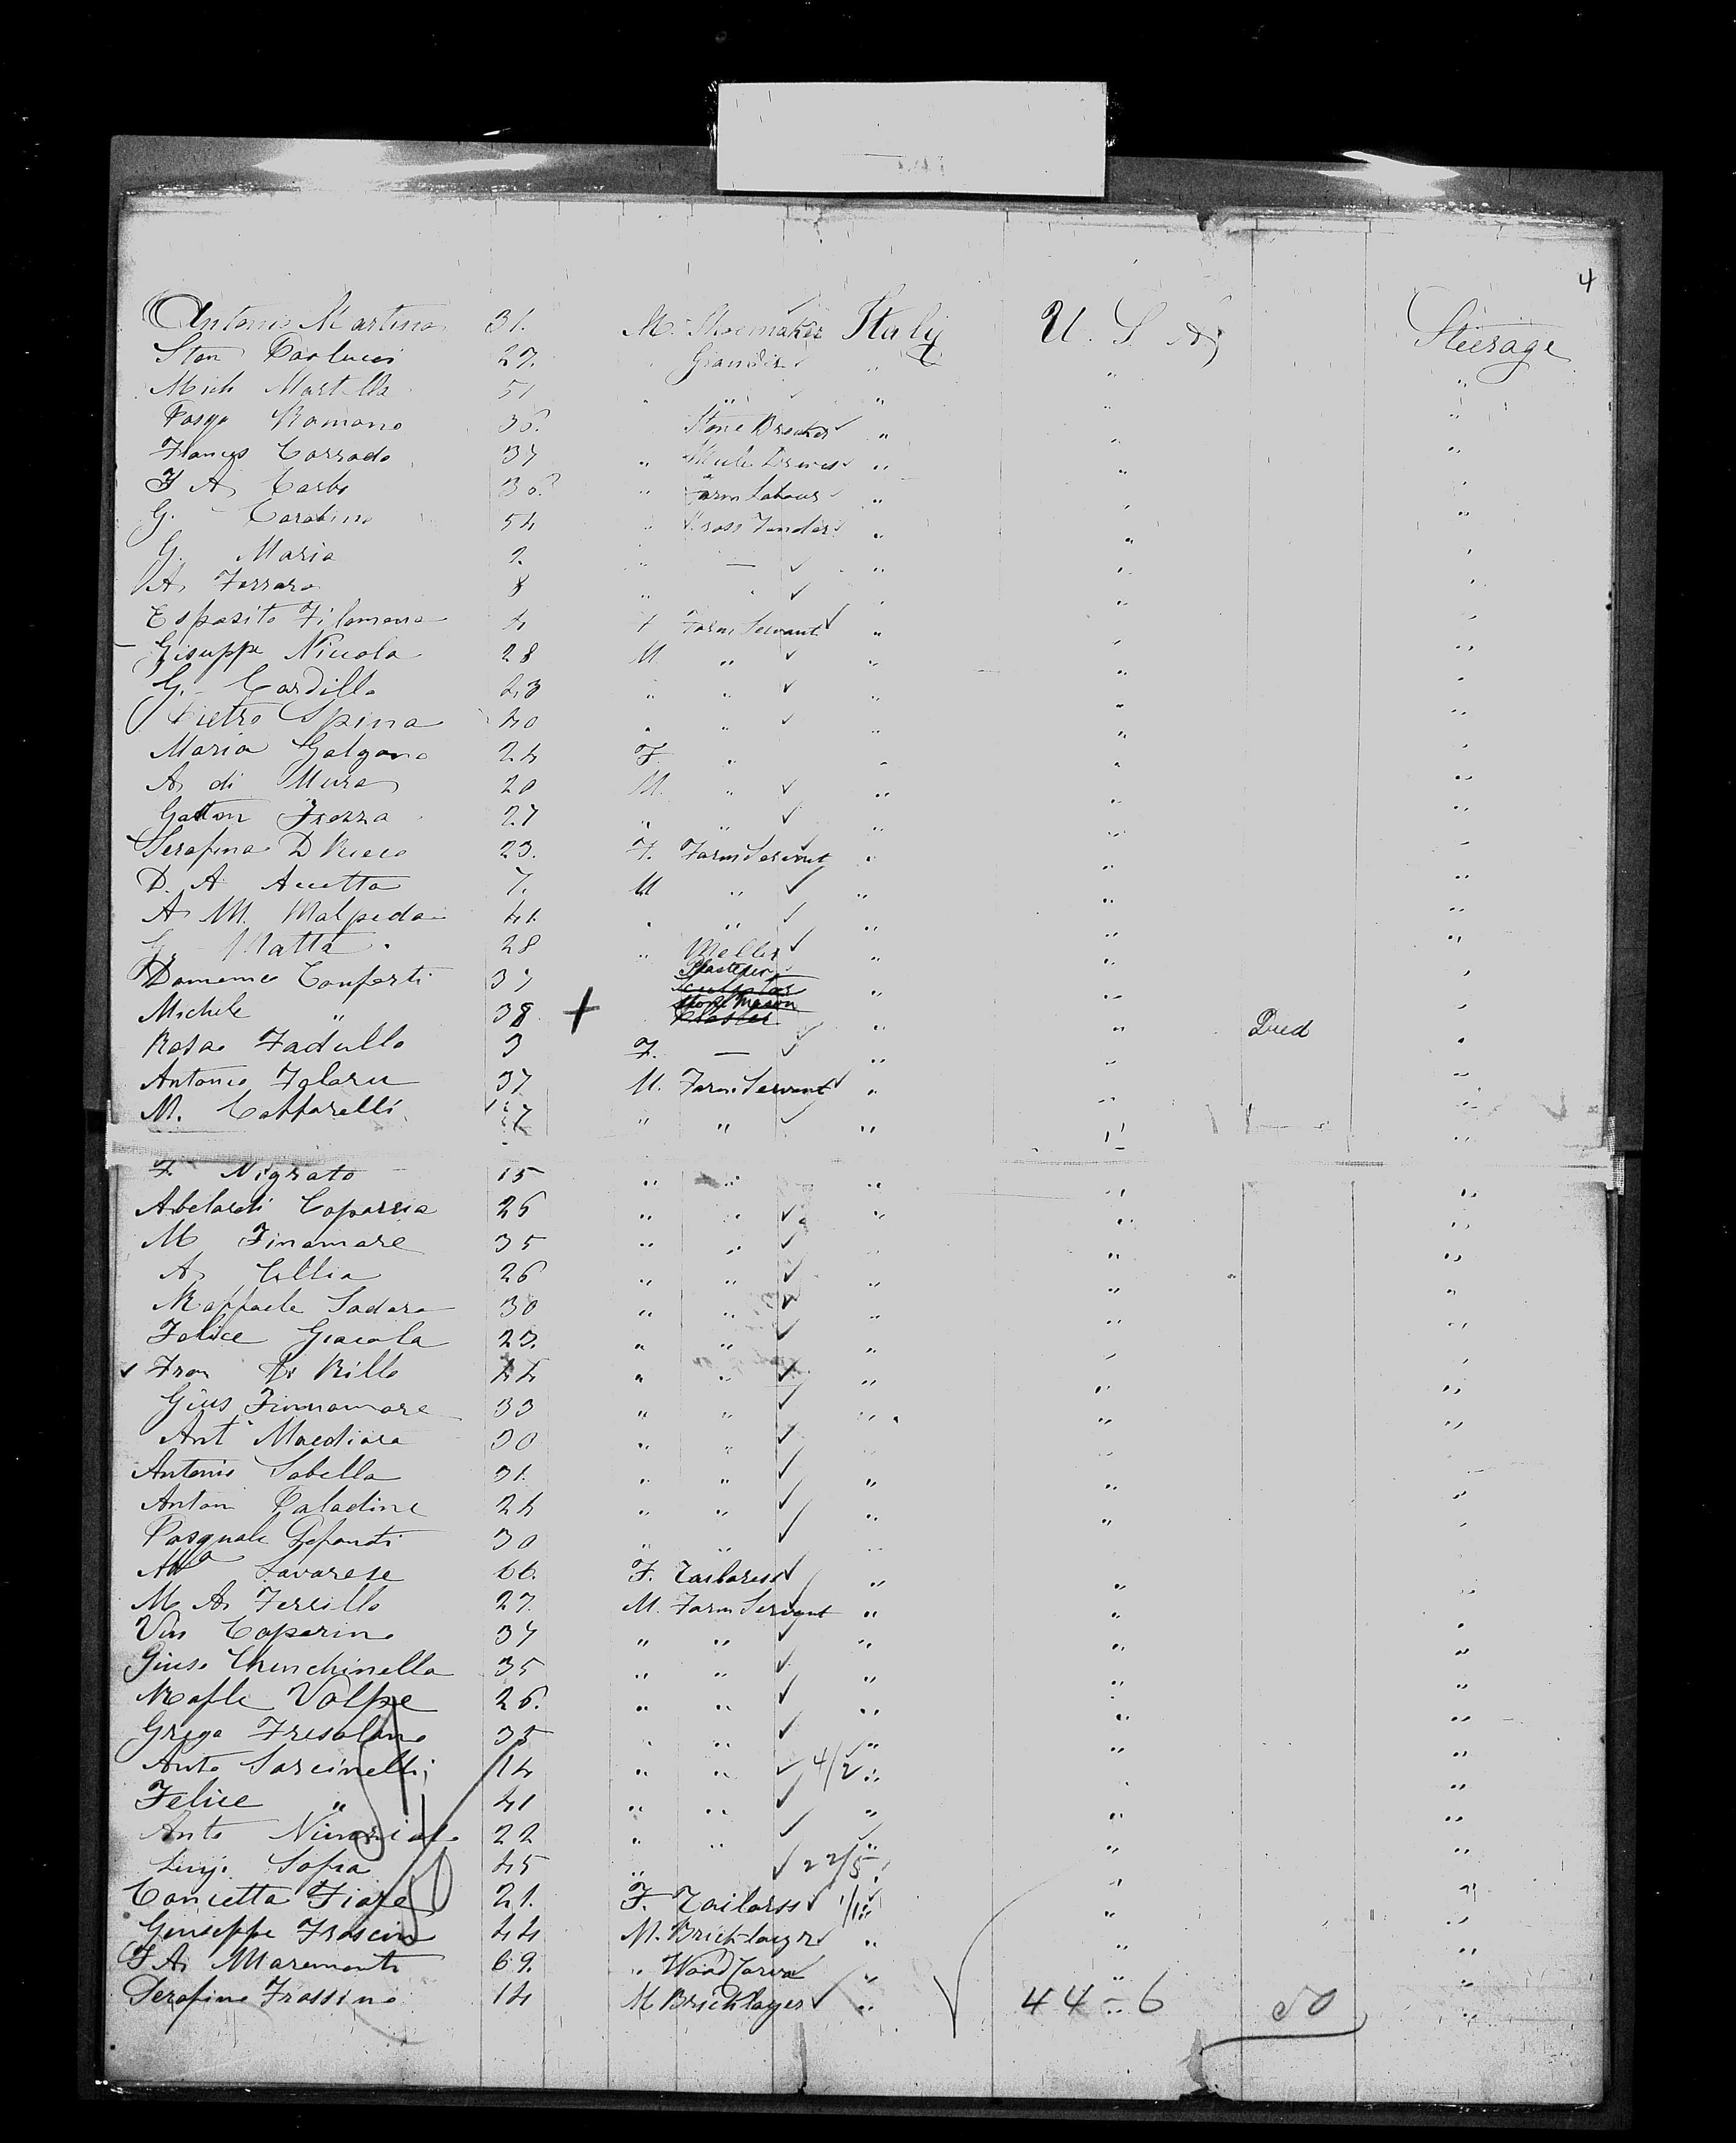 4
Antonio Martino 31. M. Shoemaker Italy U. S. A. Steerage
Stan Paolucci 27. " " " "
Mich Martella 51 " " " " "
Pasqe Romano 36. Stone Breaker " " "
Francs Corrado 37 " Mule Driver " " "
F A Carbo 30. " Farm Labour " " "
G. Carolino 54 " " " "
G. Maria 2. " — " " "
A Ferraro 8 " " " " "
Esposito Filomena 4 f Farm Servant " " "
Giseppe Niccola 28 M " " " "
G. Cardillo 23 " " " " "
Pietro Spina 40 " " " " "
Maria Galgano 24 F. " " " "
A di Mura 20 M. " " " "
Gaton Frezza 27 " " " " "
Serafina D Rieco 23. F. Farm Servant " " "
D. A Accetta 7. M " " " "
A M. Malpeda 41. " " " " "
G. Matta 28 " " " "
Domenico Conforti 37 Plasterer " " "
Michele " 38 + Stone Mason " " Died "
Rosa Fadullo 3 F. — " " "
Antonio Folaru 37 M. Farm Servant " " "
M. Caffarelli 37 " " " " "
F. Nigrato 15 " " " " "
Abelardi Coparria 26 " " " " "
M Finamare 35 " " " " "
A Collia 26 " " " " "
Raffaele Sadara 30 " " " " "
Felice Giacola 23. " " " " "
Fran Di Rillo 44 " " " " "
Gius Finnamare 33 " " " " "
Ant Macdiara 30 " " " " "
Antonio Sabella 31. " " " " "
Anton Paladine 24 " " " " "
Pasquale Defonti 30 " " " " "
Ma Savarese 66. F. Tailoress " " "
M A Ferrillo 27. M. Farm Servant " " "
Vin Caparino 37 " " " " "
Giuse Chinchinella 35 " " " " "
Rafle Volpe 26. " " " " "
Grega Fresolano 35 " " " " "
Anto Sarcinelli 14 " " 4/2 " " "
Felice " 41 " " " " "
Anto 22 " " " " "
Luigi Sofia 45 " 22/5 " " "
Concetta Fiore 21. F. Tailorss 1/1 " " "
Genseppe Frascino 44 M. Bricklayer " " "
F A Maremonti 69. " Wood Carver " " "
Serafino Frassino 14 M Bricklayer " 44 - 6 50 "